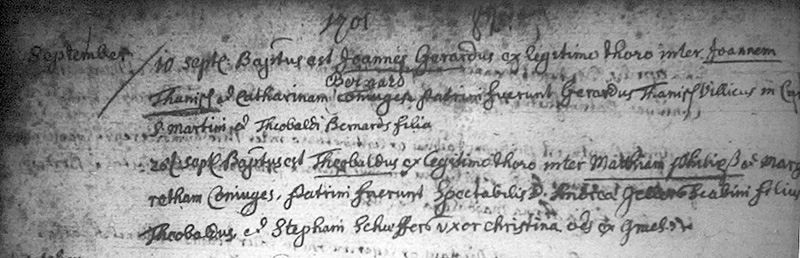 1701
September
10 sept: Baptus est Joannes Gerardus ex legitimo thoro inter Joannem
Bernard
Thanisch et Catharinam coniuges, Patrini fuerunt Gerardus Thanisch Villicus in
S. Martini, et Theobaldi Bernards filia
sept: Baptus est Theobaldus ex legitimo thoro inter Matthiam Philips et Marga
retham Coniuges, Patrini fuerunt Spectabilis D. Scabini filius
Theobaldus, et Stephani Scheffers uxor Christina ex